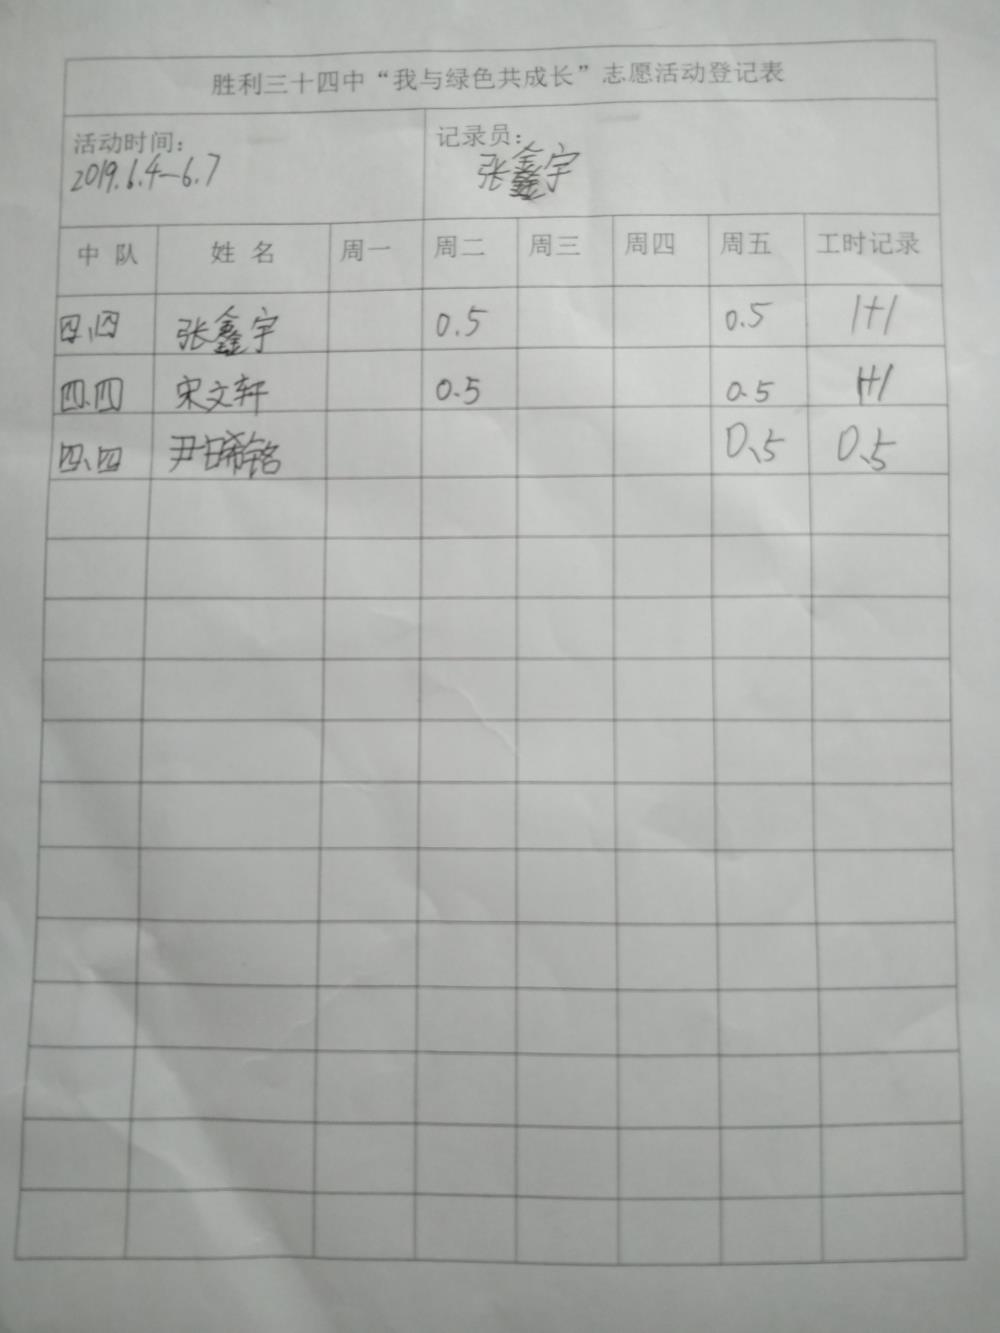 胜利三十四中“我与绿色共成长”志愿活动登记表
活动时间： 记录员：
2019.6.4—6.7 张鑫宇
中 队 姓 名 周一 周二 周三 周四 周五 工时记录
四、四 张鑫宇 0.5 0.5 1+1
四、四 宋文轩 0.5 0.5 1+1
四、四 尹晞铭 0.5 0.5